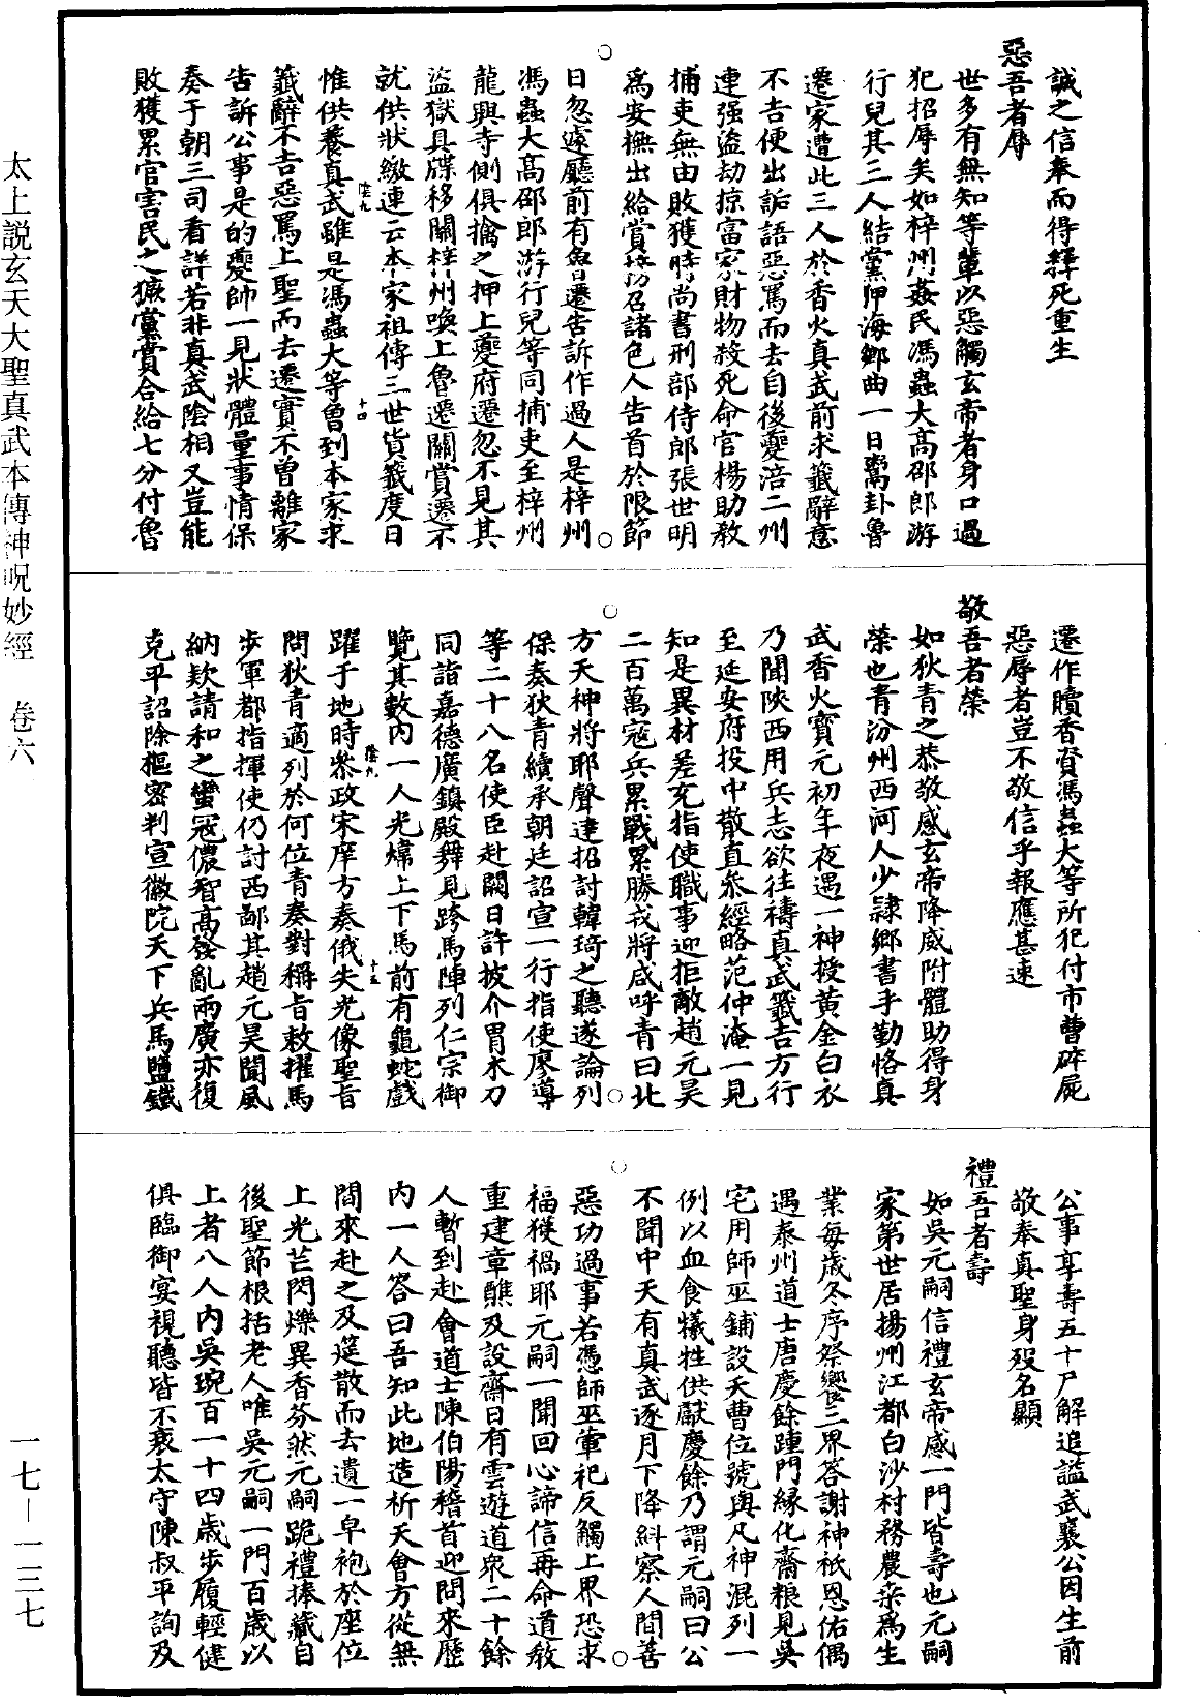 誠之信奉而得釋死重生
惡吾者辱
世多有無知等輩以惡觸玄帝者身口過
犯招辱矣如梓州姦民馮蟲大高邵郎游
行兒其三人結黨狎海鄉曲一日鬻卦魯
遷家遭此三人於香火真武前求籤辭意
不吉便出詬語惡罵而去自後夔涪二州
連强盜劫掠富家財物殺死命官楊助教
捕吏無由敗獲時尚書刑部侍郎張世明
爲安撫出給賞募召諸色人告首於限節
日忽遽廳前有魯遷告訴作過人是梓州
馮蟲大高邵郎游行兒等同捕吏至梓州
龍興寺側俱擒之押上夔府遷忽不見其
盜獄具牒移關梓州喚上魯遷關賞遷不
就供狀繳連云本家祖傳三世貨籤度日
惟供養真武雖是馮蟲大等曾到本家求
籤辭不吉惡罵上聖而去遷實不曾離家
告訴公事是的夔帥一見狀體量事情保
奏于朝三司看詳若非真武陰相又豈能
敗獲累官害民之獷黨賞合給七分付魯
遷作贖香資馮蟲大等所犯付市曹碎屍
惡辱者豈不敬信乎報應甚速
敬吾者榮
如狄青之恭敬感玄帝降威附體助得身
榮也青汾州西河人少隸鄉書手勤恪真
武香火寶元初年夜遇一神授黃金白衣
乃聞陝西用兵志欲往禱真武籤吉方行
至延安府投中散直參經略范仲淹一見
知是異材差充指使職事迎拒敵趙元昊
二百萬寇兵累戰累勝戎將咸呼青曰北
方天神將耶聲達招討韓琦之聽遂論列
保奏狄青續承朝廷詔宣一行指使廖導
等二十八名使臣赴闕日許披介胄木刀
同詣嘉德廣鎮殿舞見跨馬陣列仁宗御
覽其數內一人光煒上下馬前有龜蛇戲
躍于地時參政宋庠方奏俄失光像聖旨
問狄青適列於何位青奏對稱旨敕擢馬
步軍都指揮使仍討西鄙其趙元昊聞風
納欵請和之蠻冠儂智高發亂兩廣亦復
克平詔除樞密判宣徽院天下兵馬鹽鐵
公事享壽五十尸解追謚武襄公因生前
敬奉真聖身歿名顯
禮吾者壽
如吳元嗣信禮玄帝感一門皆壽也元嗣
家第世居揚州江都白沙村務農桒爲生
業每歲冬序祭饗三界答謝神祇恩佑偶
遇泰州道士唐慶餘踵門緣化齋粮見吳
宅用師巫鋪設天曹位號與凡神混列一
例以血食犧牲供獻慶餘乃謂元嗣曰公
不聞中天有真武逐月下降糾察人間善
惡功過事若憑師巫葷祀反觸上界恐求
福獲禍耶元嗣一聞回心諦信再命道教
重建章醮及設齋日有雲遊道衆二十餘
人暫到赴會道士陳伯陽稽首迎問來歷
內一人答曰吾知此地造祈天會方從無
間來赴之及筵散而去遺一皁袍於座位
上光芒閃爍異香芬然元嗣跪禮捧藏自
後聖節根括老人唯吳元嗣一門百歲以
上者八人內吳琬百一十四歲步履輕健
俱臨御宴視聽皆不衰太守陳叔平詢及
太上説玄天大聖真武本傳神呪妙經 卷六
一七—一三七
陰九
十四
陰九
十五